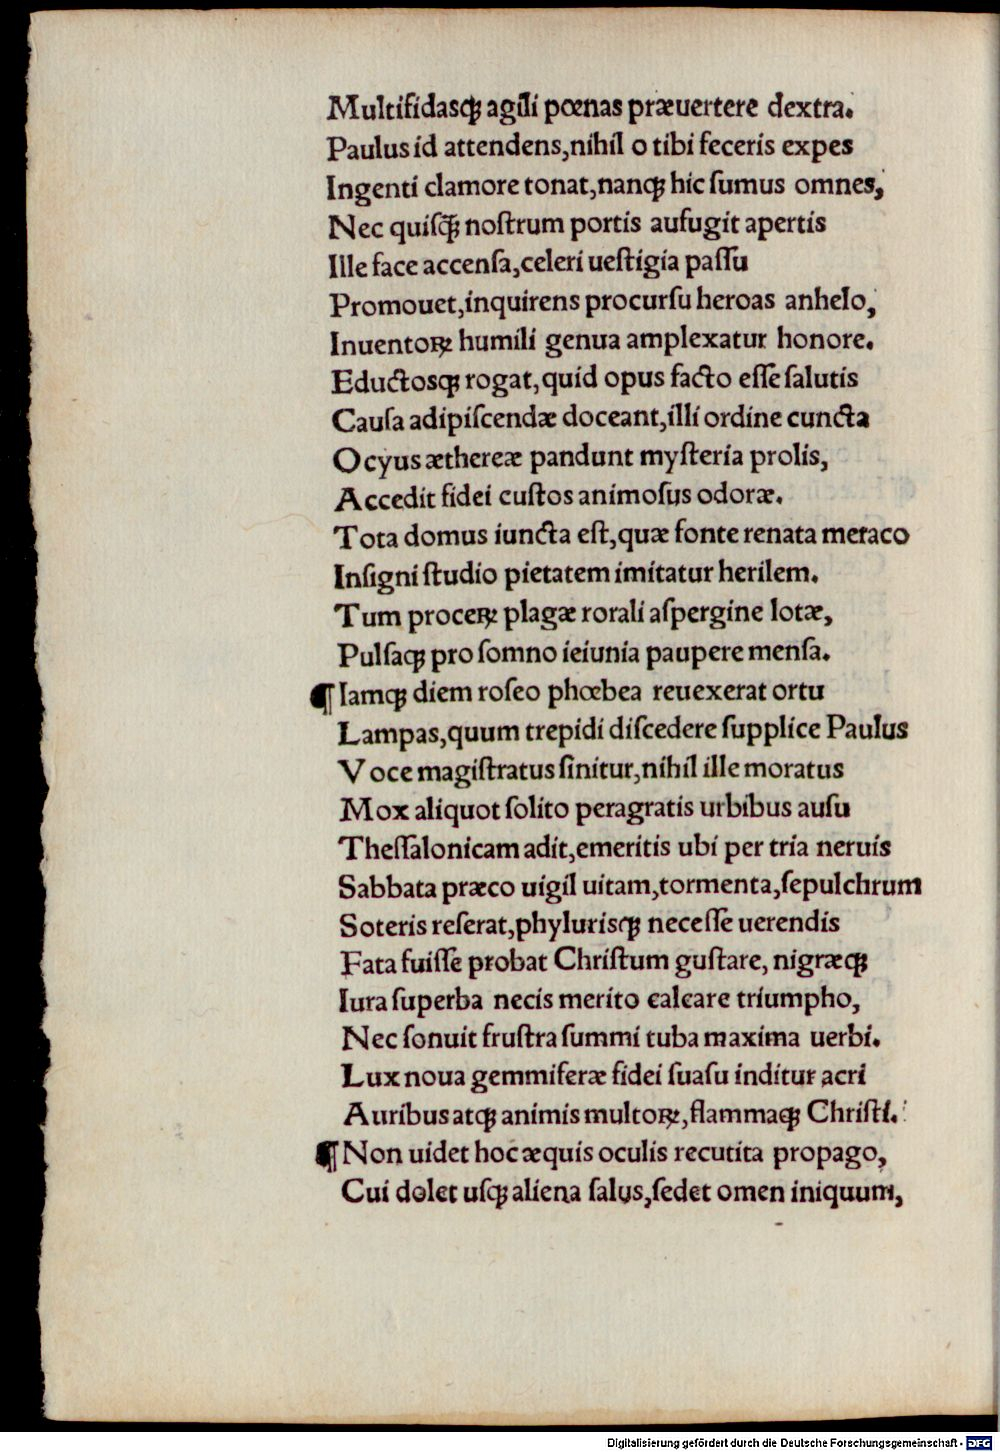 Multifidasqꝫ agili pœnas præuertere dextra.
Paulus id attendens,nihil o tibi feceris expes
Ingenti clamore tonat,nanqꝫ hic ſumus omnes,
Nec quiſq̃ꝫ noſtrum portis aufugit apertis
Ille face accenſa,celeri ueſtigia paſſu
Promouet,inquirens procurſu heroas anhelo,
Inuentoꝝ humili genua amplexatur honore.
Eductosqꝫ rogat,quid opus facto eſſe ſalutis
Cauſa adipiſcendæ doceant,illi ordine cuncta
Ocyus æthereæ pandunt myſteria prolis,
Accedit fidei cuſtos animoſus odoræ.
Tota domus iuncta eſt,quæ fonte renata metaco
Inſigni ſtudio pietatem imitatur herilem.
Tum proceꝝ plagæ rorali aſpergine lotæ,
Pulſaqꝫ pro ſomno ieiunia paupere menſa.
¶ Iamqꝫ diem roſeo phœbea reuexerat ortu
Lampas,quum trepidi diſcedere ſupplice Paulus
Voce magiſtratus ſinitur,nihil ille moratus
Mox aliquot ſolito peragratis urbibus auſu
Theſſalonicam adit,emeritis ubi per tria neruis
Sabbata præco uigil uitam,tormenta,ſepulchrum
Soteris reſerat,phylurisqꝫ neceſſe uerendis
Fata fuiſſe probat Chriſtum guſtare, nigræqꝫ
Iura ſuperba necis merito calcare triumpho,
Nec ſonuit fruſtra ſummi tuba maxima uerbi.
Lux noua gemmiferæ fidei ſuaſu inditur acri
Auribus atqꝫ animis multoꝝ,flammaqꝫ Chriſti.
¶ Non uidet hoc æquis oculis recutita propago,
Cui dolet uſqꝫ aliena ſalus,ſedet omen iniquum,
Digitalisierung gefördert durch die Deutsche Forschungsgemeinschaft - DFG